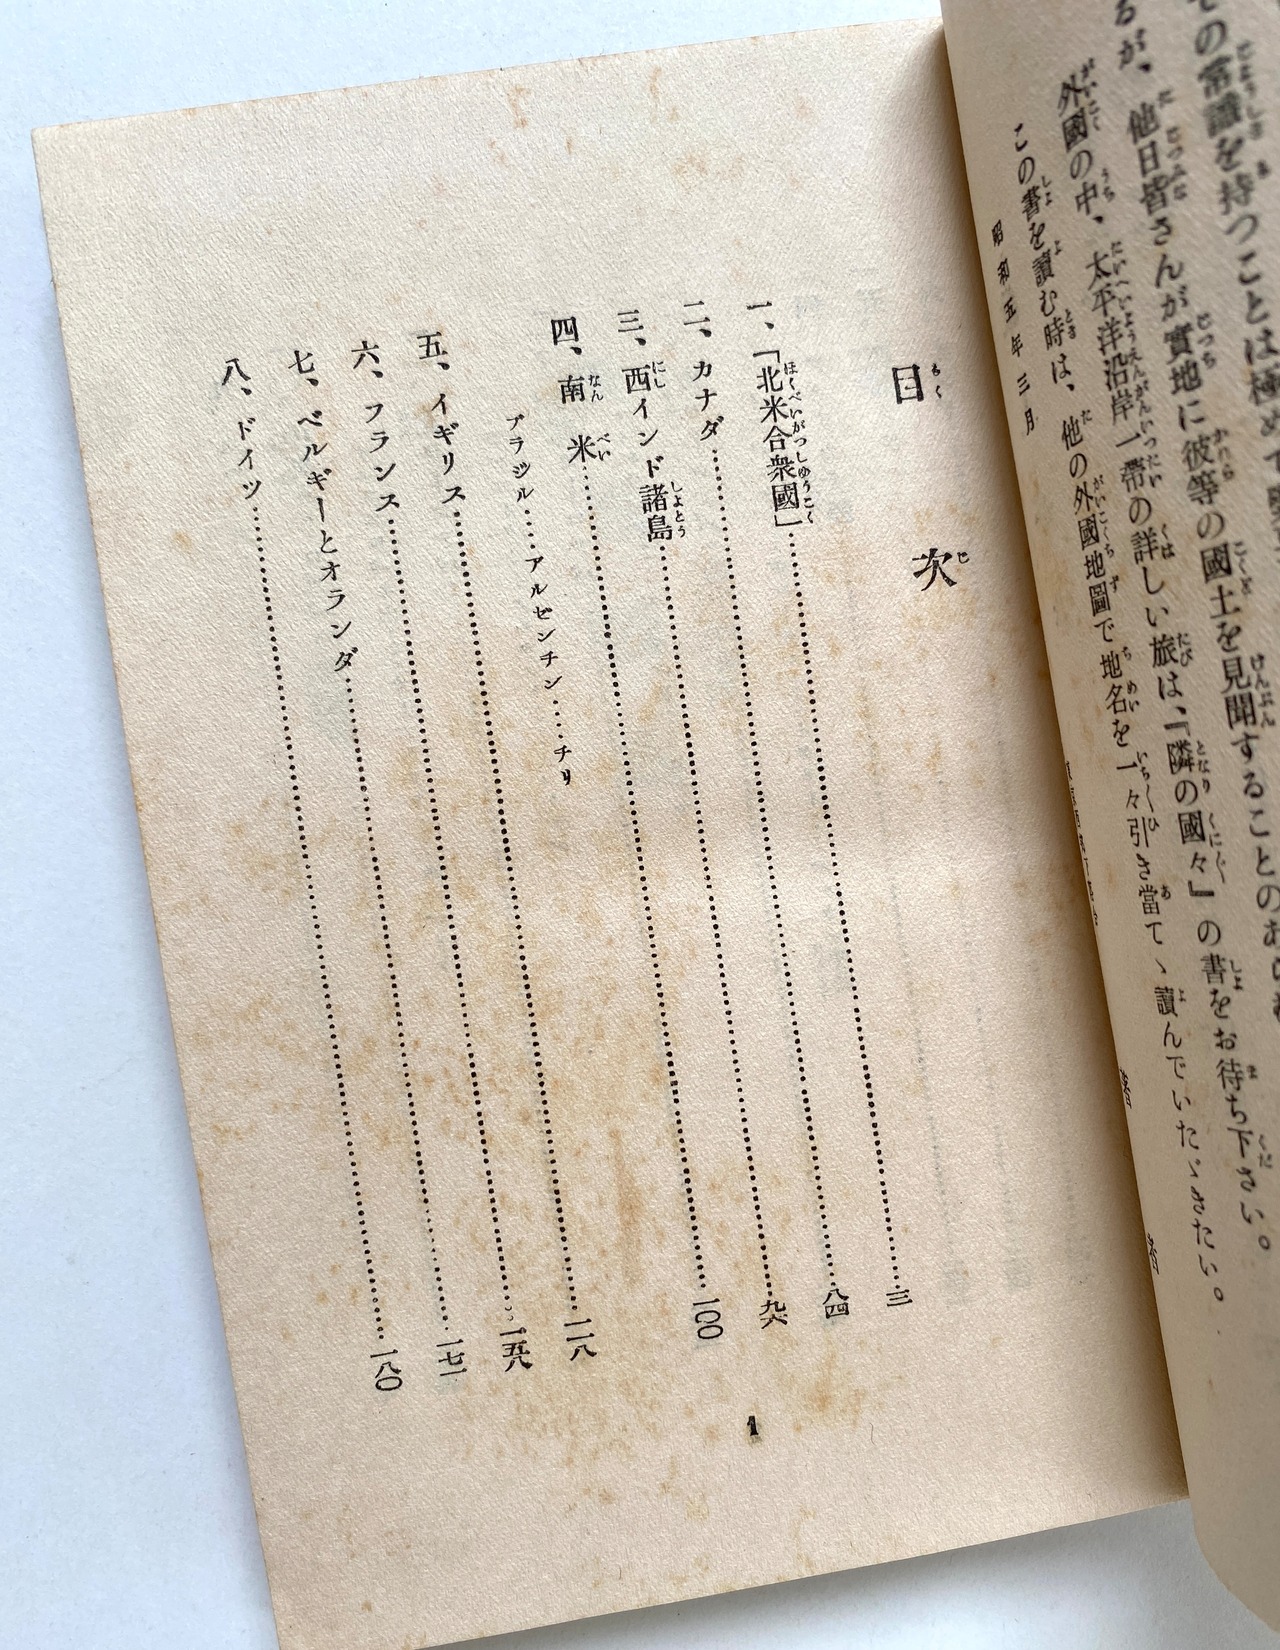 その常識を持つことは極めて
るが、他日皆さんが實地に彼等の國土を見聞することの
外國の中、太平洋沿岸一帶の詳しい旅は、『隣の國々』の書をお待ち下さい。
この書を讀む時は、他の外國地圖で地名を一々引き當てゝ讀んでいたゞきたい。
昭和五年三月
目次
一、「北米合衆國」……三
二、カナダ……八四
三、西インド諸島……九六
四、南米……一〇〇
ブラジル……アルゼンチン……チリ
五、イギリス……一一八
六、フランス……一五八
七、ベルギーとオランダ……一七一
八、ドイツ……一八〇
1